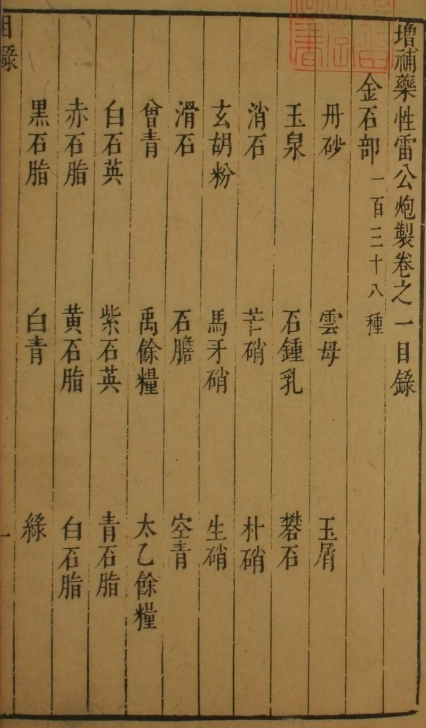 增補藥性雷公炮製卷之一目錄
金石部 一百三十八種
丹砂 雲母 玉屑
玉泉 石鍾乳 礬石
消石 芒硝 朴硝
玄胡粉 馬牙硝 生硝
滑石 石膽 空青
曾青 禹餘糧 太乙餘糧
白石英 紫石英 青石脂
赤石脂 黃石脂 白石脂
黑石脂 白青 綠
目錄 一